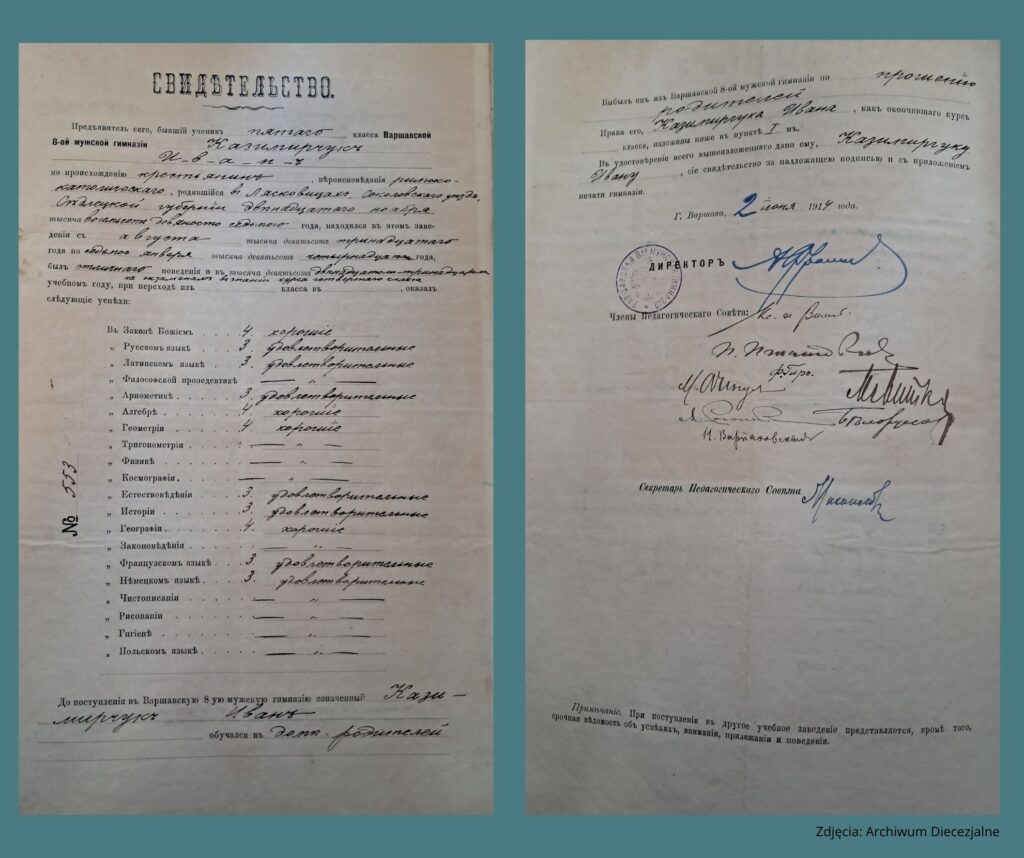 СВИДѢТЕЛЬСТВО.
Предъявитель сего, бывшій ученикъ пятаго класса Варшавской
8-ой мужской гимназіи Казимирчукъ
И-в-а-н-ъ
по происхожденію крестьянинъ, вѣроисповѣданія римско-
католическаго, родившійся въ Лясковицахъ, Соколовскаго уѣзда,
Сѣдлецкой губерніи двѣнадцатаго ноября
тысяча восемьсотъ девяносто седьмого года, находился въ этомъ заве-
деніи съ августа тысяча девятьсотъ тринадцатаго
года по седьмое января тысяча девятьсотъ четырнадцат. года,
былъ поведенія и въ тысяча девятьсотъ двѣнадцатомъ-тринадцатомъ
на экзаменахъ курса четвертаго класса
учебномъ году, при переходѣ изъ класса въ , оказалъ
слѣдующіе успѣхи:
Въ Законѣ Божіемъ 4. хорошіе
„ Русскомъ языкѣ 3. удовлетворительные
„ Латинскомъ языкѣ 3. удовлетворительные
„ Философской пропедевтикѣ — „ —
„ Ариѳметикѣ 3. удовлетворительные
„ Алгебрѣ 4. хорошіе
„ Геометріи 4. хорошіе
„ Тригонометріи — „ —
„ Физикѣ — „ —
„ Космографіи — „ —
„ Естествовѣдѣніи 3. удовлетворительные
„ Исторіи 3. удовлетворительные
„ Географіи 4. хорошіе
„ Законовѣдѣніи — „ —
„ Французскомъ языкѣ 3. удовлетворительные
„ Нѣмецкомъ языкѣ 3. удовлетворительные
„ Чистописаніи — „ —
„ Рисованіи — „ —
„ Гигіенѣ — „ —
„ Польскомъ языкѣ — „ —
До поступленія въ Варшавскую 8 ую мужскую гимназію означенный Кази-
мирчукъ Иванъ
обучался въ домѣ родителей
№ 553
Выбылъ онъ изъ Варшавской 8-ой мужской гимназіи по прошенію
родителей
Права его, Казимирчука Ивана, какъ окончившаго курсъ
класса, изложены ниже въ пунктѣ I мъ.
Въ удостовѣреніе всего вышеизложеннаго дано ему, Казимирчуку
Ивану, сіе свидѣтельство за надлежащею подписью и съ приложеніемъ
печати гимназіи.
Г. Варшава, 2 іюня 1914 года.
ДИРЕКТОРЪ
Члены Педагогическаго Совѣта:
Н. Варшавскій
Секретарь Педагогическаго Совѣта
Примѣчаніе. При поступленіи въ другое учебное заведеніе представляется, кромѣ того,
срочная вѣдомость объ успѣхахъ, вниманіи, прилежаніи и поведеніи.
Zdjęcia: Archiwum Diecezjalne